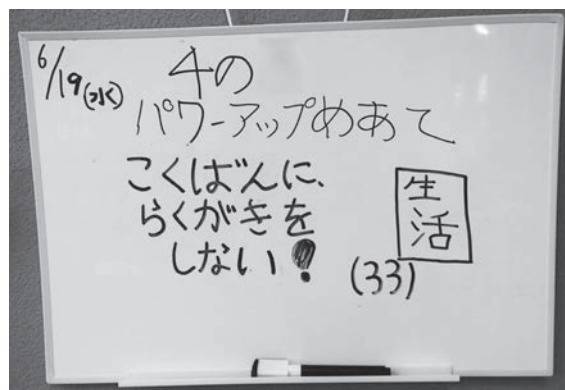 6/19(水)
4の
パワーアップめあて
こくばんに、
らくがきを
しない!
生活
(33)